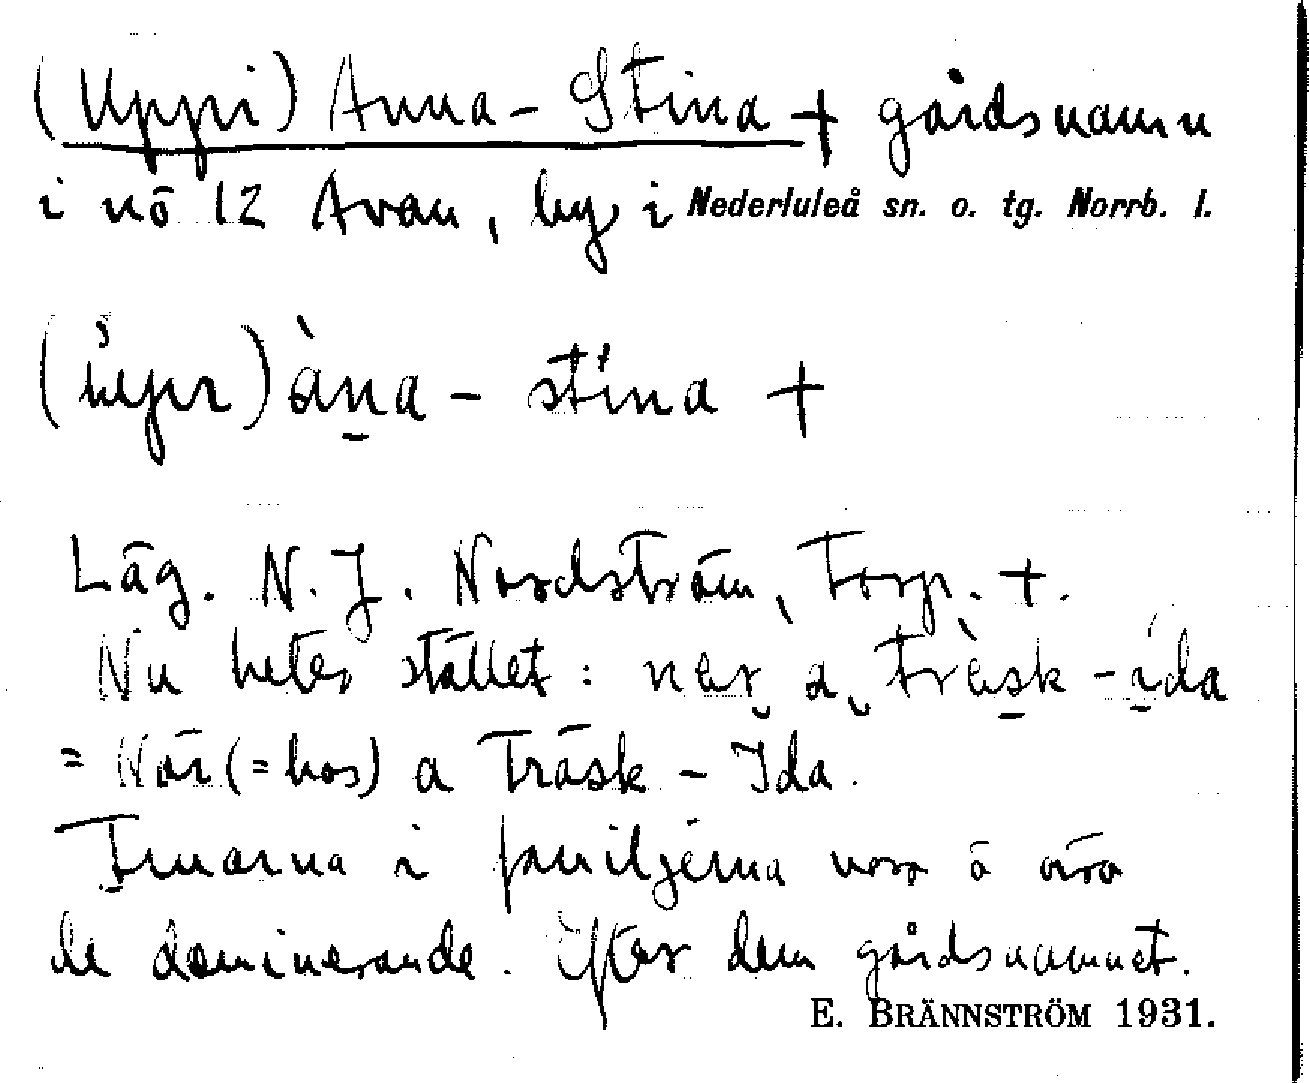 (Uppi) Anna-Stina + gårdsnamn
i nö 12 Avan, by i Nederluleå sn. o. tg. Norrb. l.
àna - stína +
Läg. N. J. Nordström, Torp. +.
Nu heter stället: när a, träsk - ída
= När (= hos) a Träsk - Ida.
Fruarna i familjerna voro ö
de dominerande. Efter dem gårdsnamnet.
E. BRÄNNSTRÖM 1931.